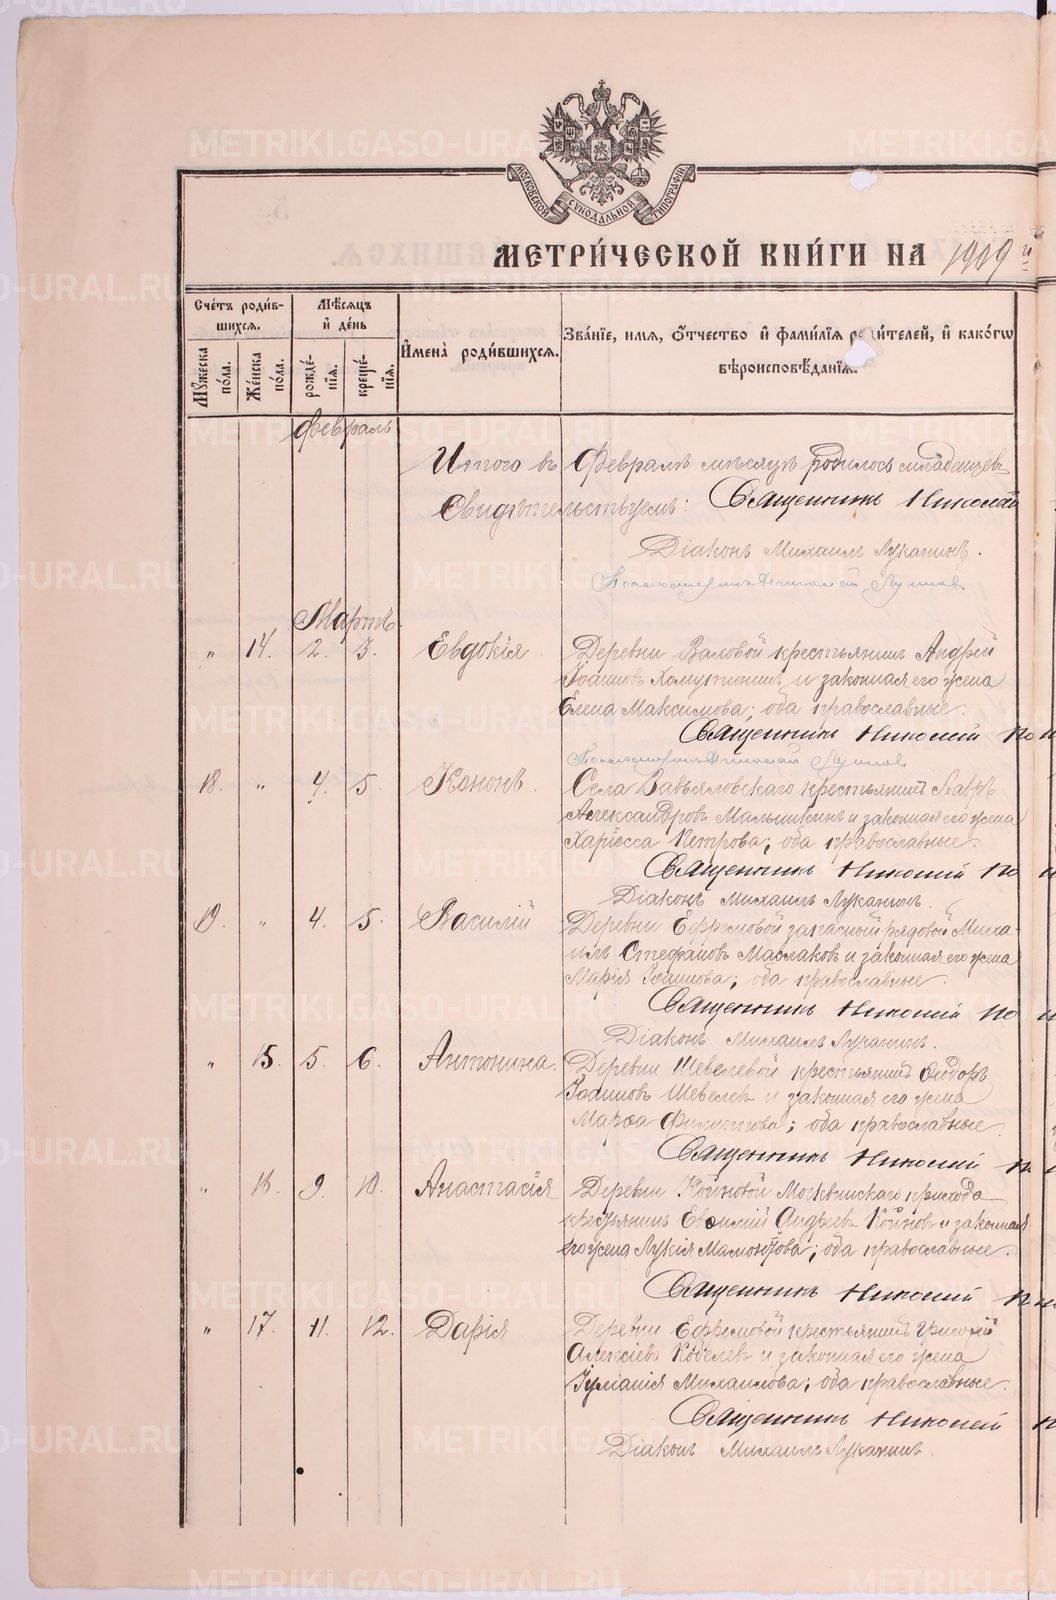 МОСКОВСКОЙ СѴНОДАЛЬНОЙ ТИПОГРАФІИ
МЕТРИ́ЧЕСКОЙ КНИ́ГИ НА 1909 й
Сче́тъ роди́в-
шихся.
Мѣ́сяцъ
и҆ де́нь
И҆мена̀ роди́вшихся.
Зва́ніе, имя, Ѻ҆тчество и҆ фами́лія роди́телей, и҆ како́гѡ
вѣроисповѣ́данія.
Мꙋжеска по́ла.
Же́нска по́ла.
рожде́-
нія.
креще́-
нія.
Февраль
Итого въ Февралѣ мѣсяцѣ родилось младенцевъ
Свидѣтельствуемъ: Священникъ Николай
Діаконъ Михаилъ Луканинъ.
Мартъ.
" 14. 2. 3. Евдокія. Деревни Валовой крестьянинъ Андрей
Іоанновъ Хомутининъ и законная его жена
Елена Максимова; оба православные.
Священникъ Николай
18. " 4. 5. Кононъ. Села Завьяловскаго крестьянинъ Лавръ
Александровъ Малышкинъ и законная его жена
Харіесса Петрова; оба православные.
Священникъ Николай
Діаконъ Михаилъ Луканинъ.
19. " 4. 5. Василій Деревни Ефремовой запасный рядовой Миха-
илъ Стефановъ Маслаковъ и законная его жена
Марія Іоаннова; оба православные.
Священникъ Николай
Діаконъ Михаилъ Луканинъ.
" 15. 5. 6. Антонина. Деревни Шевелевой крестьянинъ Ѳеодоръ
Іоанновъ Шевелевъ и законная его жена
Марѳа Филиппова; оба православные.
Священникъ Николай
" 16. 9. 10. Анастасія Деревни Койновой Москвинскаго прихода
крестьянинъ Евѳимій Андреевъ Койновъ и законная
его жена Лукія Мамонтова; оба православные.
Священникъ Николай
" 17. 11. 12. Дарія Деревни Ефремовой крестьянинъ Григорій
Алексіевъ Кобелевъ и законная его жена
Іуліанія Михаилова; оба православные.
Священникъ Николай
Діаконъ Михаилъ Луканинъ.
METRIKI.GASO-URAL.RU